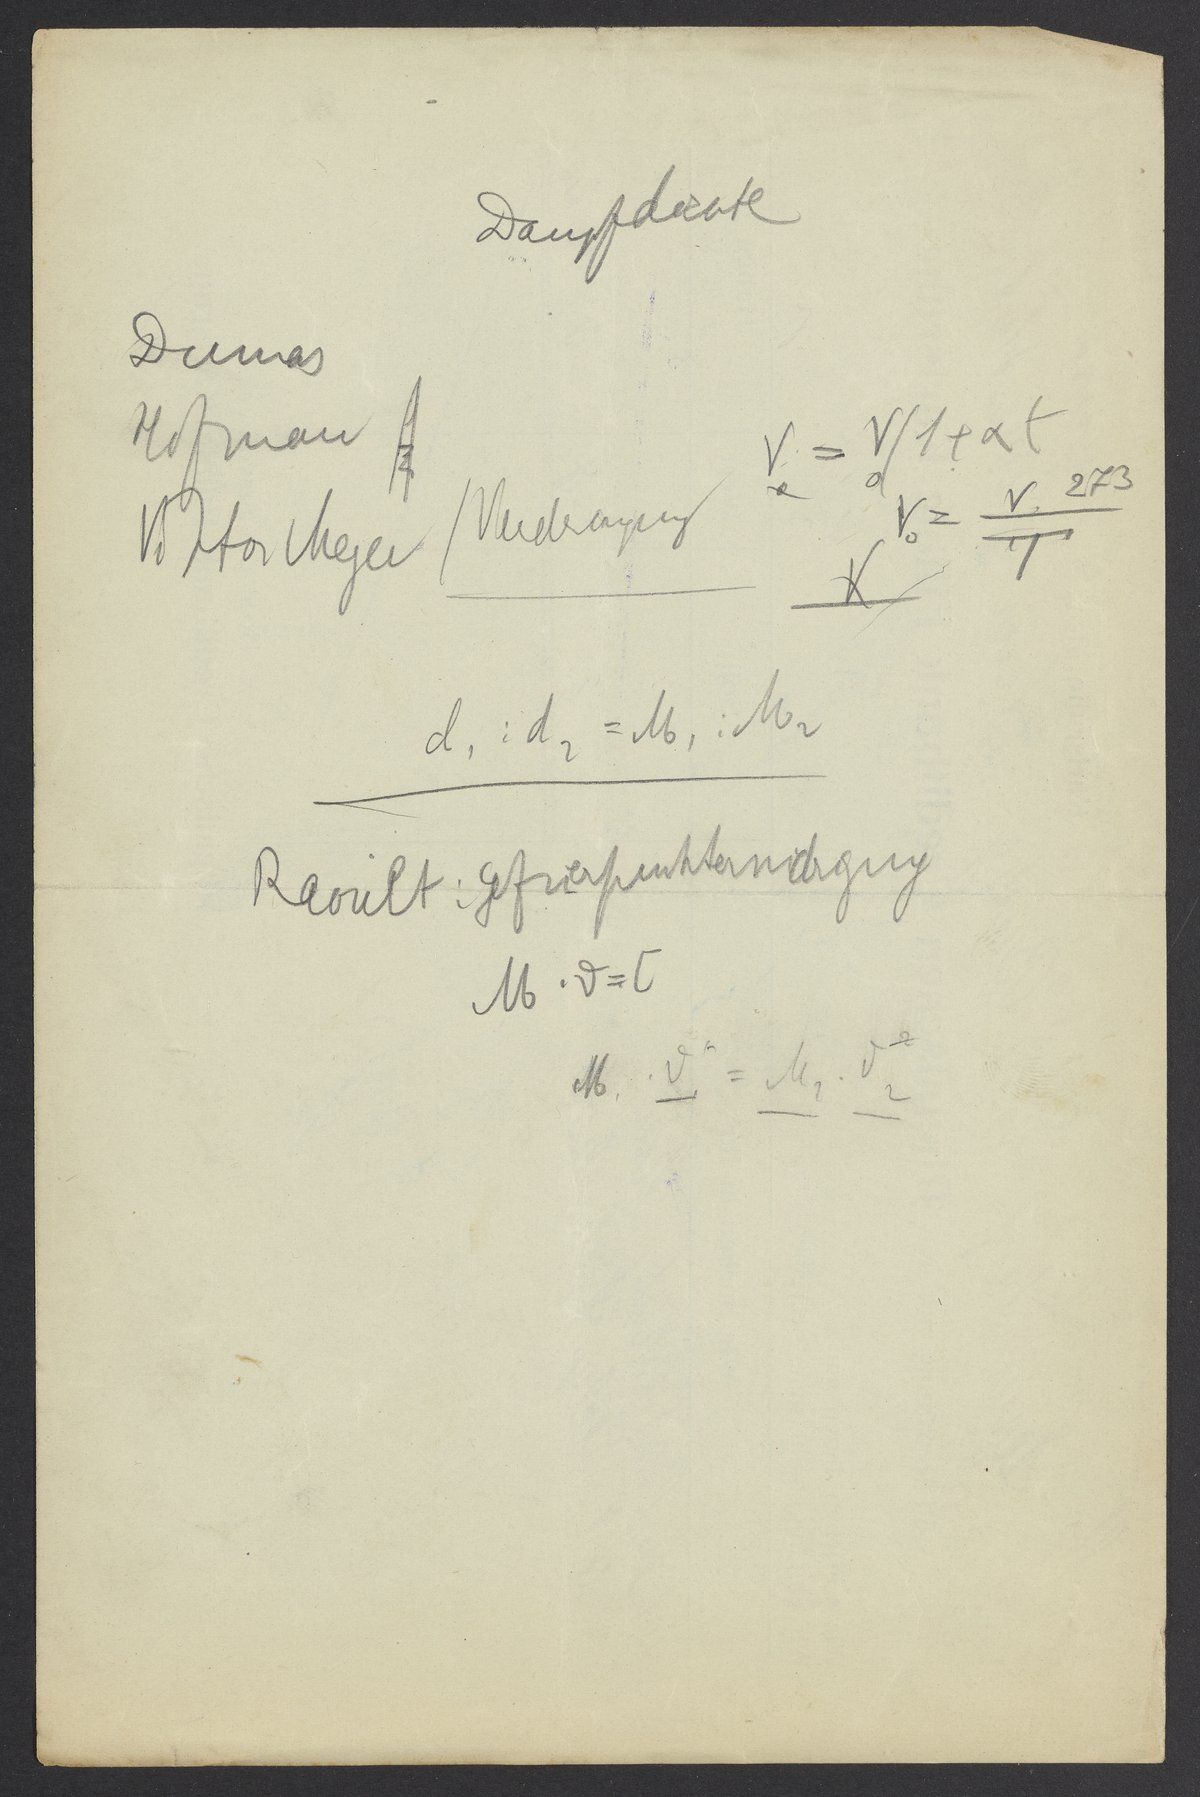 Dampfdichte
Dumas
Hofman
Viktor Meyer (Verdrängung
V = V₀(1+αt
V₀ = V. 273 / T
V
d₁ : d₂ = M₁ : M₂
Raoult : Gefrierpunkterniedrigung
M · ϑ = C
M₁ · ϑ₁ = M₂ · ϑ₂